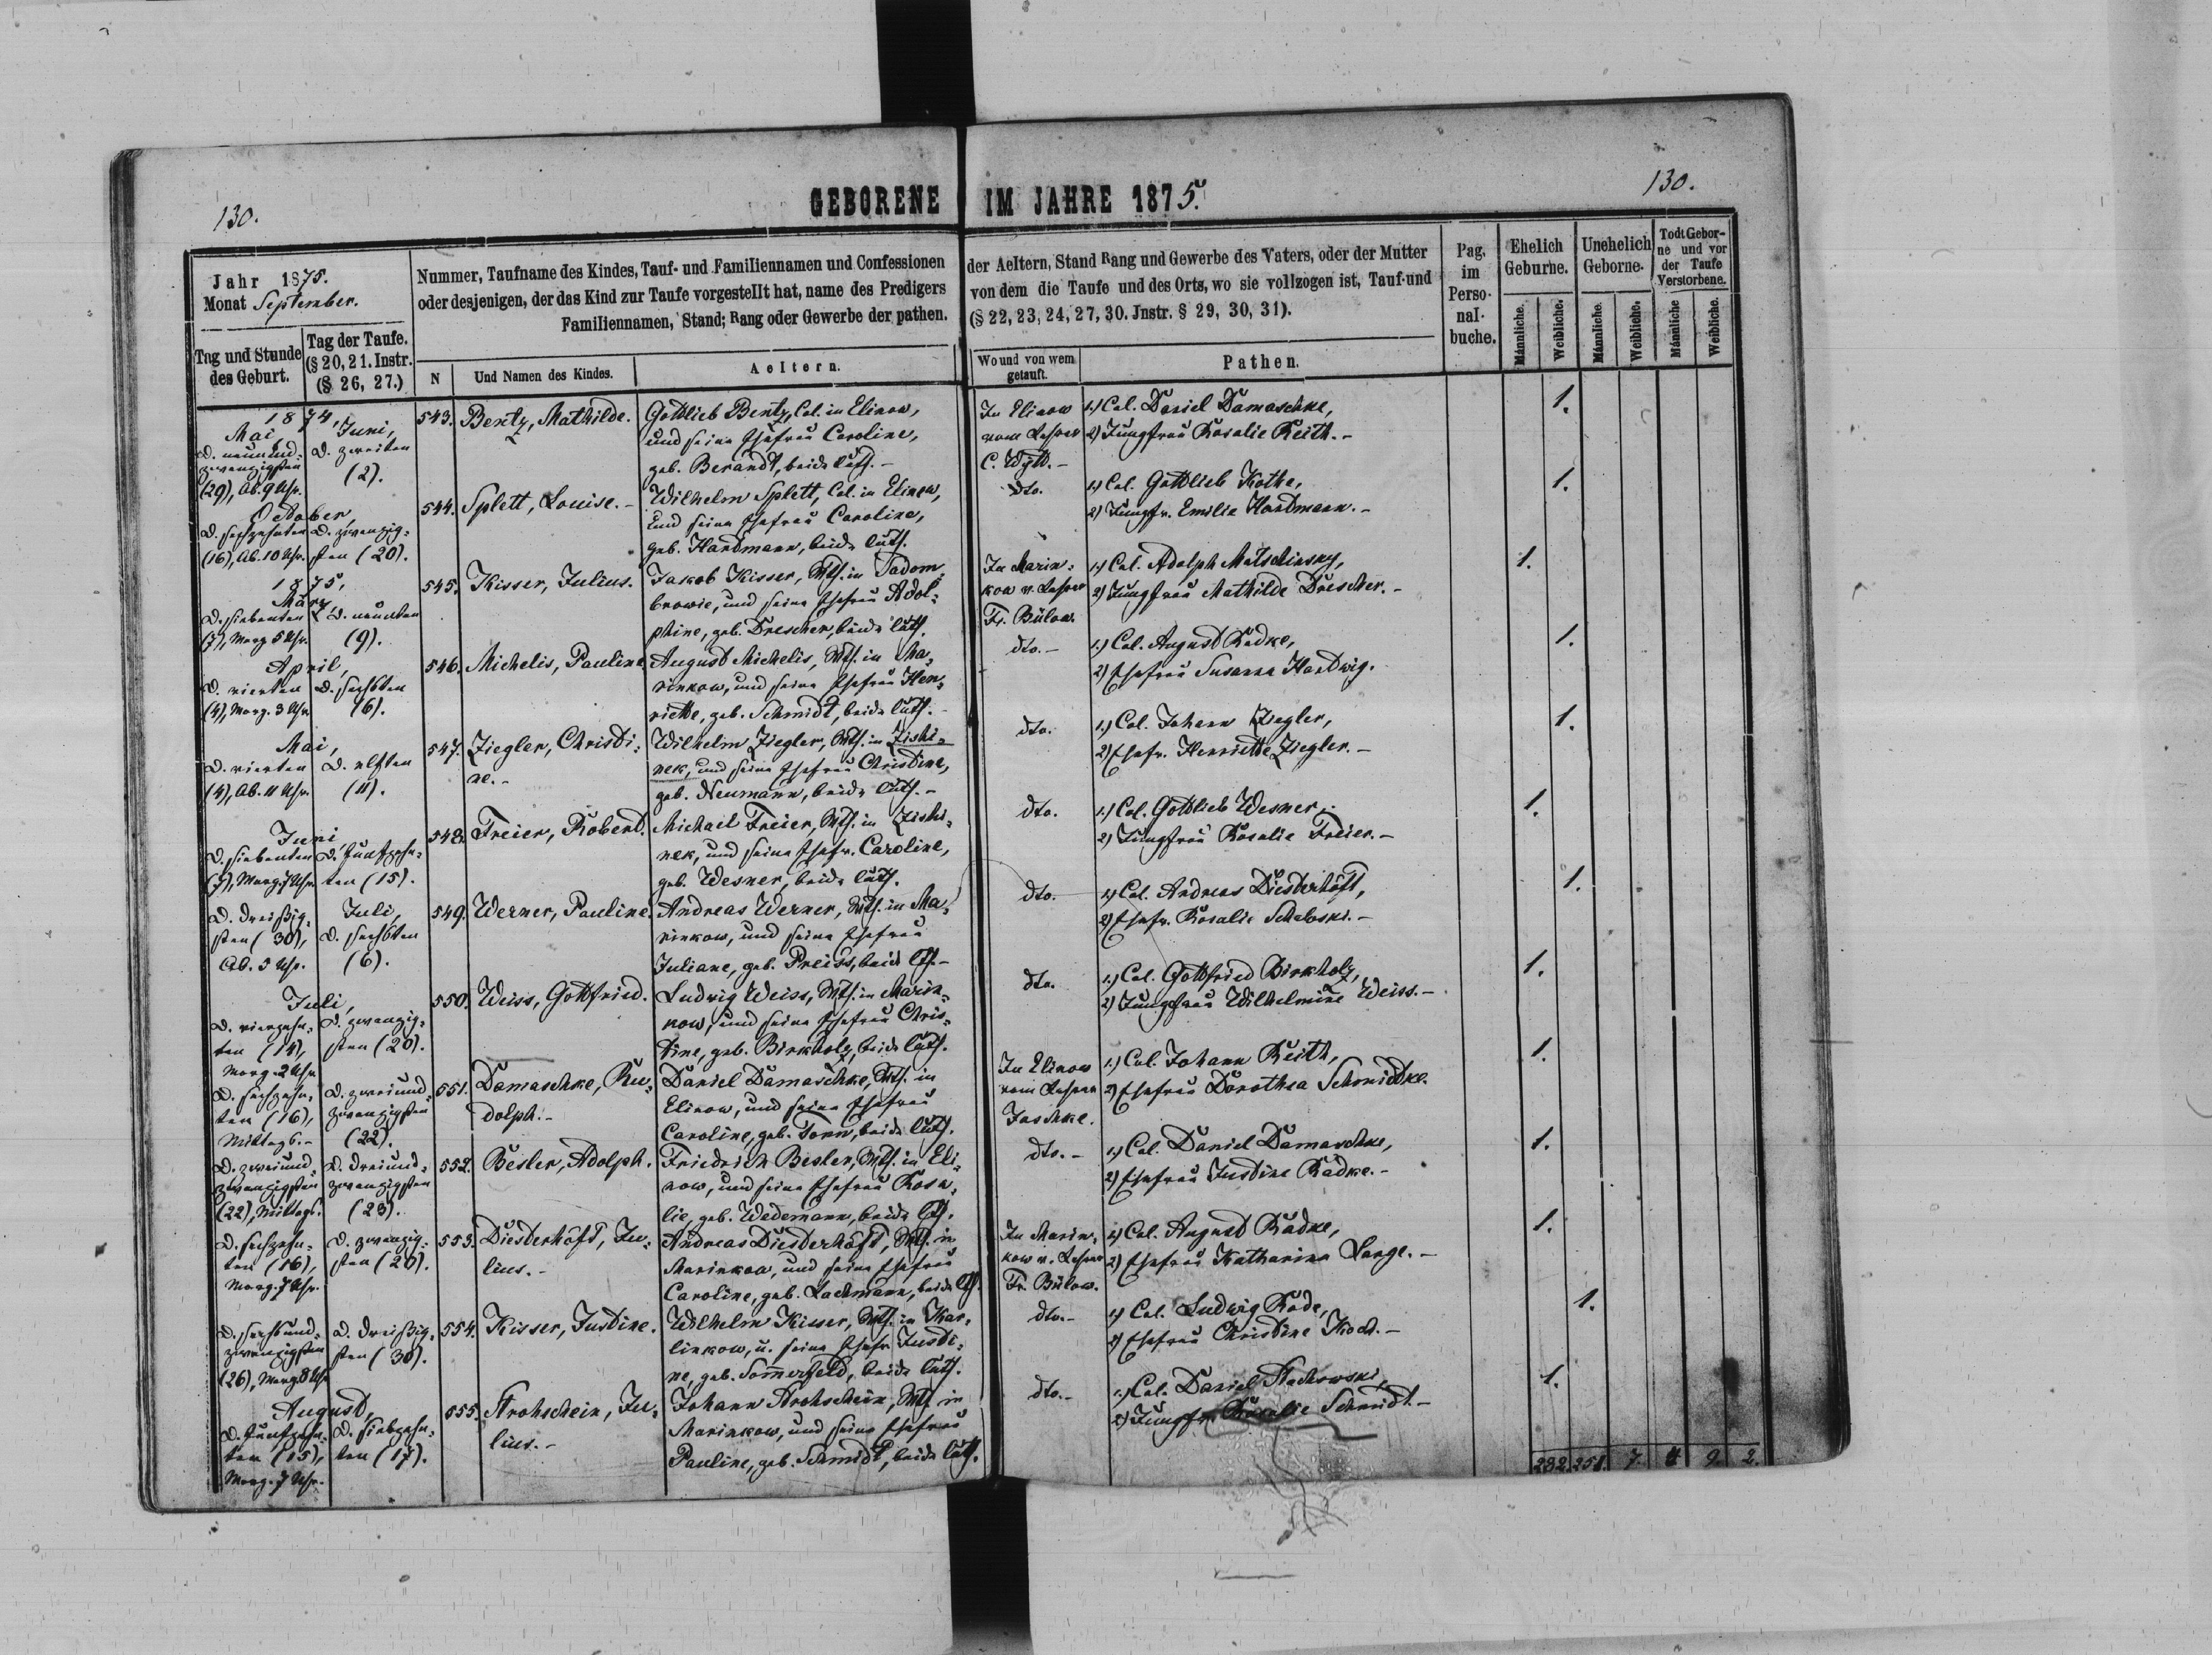 130.
GEBORENE IM JAHRE 1875.
130.
Jahr 1875.
Monat September.
Tag und Stunde
des Geburt.
Tag der Taufe.
(§ 20, 21. Instr.
(§ 26, 27.)
Nummer, Taufname des Kindes, Tauf- und Familiennamen und Confessionen
oder desjenigen, der das Kind zur Taufe vorgestellt hat, name des Predigers
Familiennamen, Stand; Rang oder Gewerbe der pathen.
N
Und Namen des Kindes.
Aeltern.
der Aeltern, Stand Rang und Gewerbe des Vaters, oder der Mutter
von dem die Taufe und des Orts, wo sie vollzogen ist, Tauf-und
(§ 22, 23, 24, 27, 30. Jnstr. § 29, 30, 31).
Wo und von wem
getauft.
Pathen.
Pag.
im
Perso-
nal-
buche.
Ehelich
Geburne.
Unehelich
Geborne.
Todt Gebor-
ne und vor
der Taufe
Verstorbene.
Männliche.
Weibliche.
Männliche.
Weibliche.
Männliche
Weibliche.
1874,
Mai,
D. neunund-
zwanzigsten
(29), Ab. 9 Uhr.
Juni,
D. zweiten
(2).
543. Bentz, Mathilde.
Gottlieb Bentz, Col. in Elinow,
und seine Ehefrau Caroline,
geb. Berandt, beide luth.-
In Elinow
vom Lehrer
C. Wytt.-
1.) Col. Daniel Damaschke,
2) Jungfrau Rosalie Keith.-
1.
October,
D. sechzehnten
(16), Ab. 10 Uhr.
D. zwanzig-
sten (20).
544. Splett, Louise.-
Wilhelm Splett, Col. in Elinow,
und seine Ehefrau Caroline,
geb. Hardmann, beide luth.
dto.
1.) Col. Gottlieb Kothe,
2) Jungfr. Emilie Hardmann.-
1.
1875,
März,
D. siebenten
(7), Morg. 5 Uhr.
D. neunten
(9).
545. Kisser, Julius.
Jakob Kisser, Wth. in Padom-
browie, und seine Ehefrau Adol-
phine, geb. Drescher, beide luth.
In Marin-
kow v. Lehrer
Fr. Bülow.
1.) Col. Adolph Matschinsky,
2) Jungfrau Mathilde Drescher.-
1.
April,
D. vierten
(4), Morg. 3 Uhr.
D. sechsten
(6).
546. Michelis, Pauline
August Michelis, Wth. in Ma-
rinkow, und seine Ehefrau Hen-
riette, geb. Schmidt, beide luth.-
dto.-
1.) Col. August Radke,
2) Ehefrau Susanna Hartwig.
1.
Mai,
D. vierten
(4), Ab. 11 Uhr.
D. elften
(11).
547. Ziegler, Christi-
ne.-
Wilhelm Ziegler, Wth. in Zishi-
nek, und seine Ehefrau Christine,
geb. Neumann, beide luth.-
dto.
1.) Col. Johann Ziegler,
2) Ehefr. Henriette Ziegler.-
1.
Juni,
D. siebenten
(7), Morg. 7 Uhr.
D. funfzehn-
ten (15).
548. Freier, Robert.
Michael Freier, Wth. in Zishi-
nek, und seine Ehefr. Caroline,
geb. Wesner, beide luth.
dto.
1.) Col. Gottlieb Wesner,
2) Jungfrau Rosalie Freier.-
1.
D. dreißig-
sten (30),
Ab. 5 Uhr.
Juli,
D. sechsten
(6).
549. Werner, Pauline.
Andreas Werner, Wth. in Ma-
rinkow, und seine Ehefrau
Juliane, geb. Preiss, beide lth.-
dto.
1.) Col. Andreas Diesterhöft,
2) Ehefr. Rosalie Schaloski.-
1.
Juli,
D. vierzehn-
ten (14),
Morg. 2 Uhr.
D. zwanzig-
sten (20).
550. Weiss, Gottfried.
Ludwig Weiss, Wth. in Marin-
now, und seine Ehefrau Chris-
tine, geb. Birkholz, beide luth.
dto.
1.) Col. Gottfried Birkholz,
2) Jungfrau Wilhelmine Weiss.-
1.
D. sechzehn-
ten (16),
Mittags.-
D. zweiund-
zwanzigsten
(22).
551. Damaschke, Ru-
dolph.-
Daniel Damaschke, Wth. in
Elinow, und seine Ehefrau
Caroline, geb. Tonn, beide luth.
In Elinow
vom Lehrer
Jaschke.
1.) Col. Johann Keith,
2) Ehefrau Dorothea Schmidtke.
1.
D. zweiund-
zwanzigsten
(22), Mittags.
D. dreiund-
zwanzigsten
(23).
552. Besler, Adolph.
Friedrich Besler, Wth. in Eli-
now, und seine Ehefrau Rosa-
lie, geb. Wedemann, beide lth.
dto.-
1.) Col. Daniel Damaschke,
2) Ehefrau Justine Radke.-
1.
D. sechzehn-
ten (16),
Morg. 7 Uhr.
D. zwanzig-
sten (20).
553. Diesterhöft, Ju-
lius.-
Andreas Diesterhöft, Wth. in
Marinkow, und seine Ehefrau
Caroline, geb. Lachmann, beide lth.
In Marin-
kow v. Lehrer
Fr. Bülow.
1.) Col. August Radke,
2) Ehefrau Katharina Lange.-
1.
D. sechsund-
zwanzigsten
(26), Morg. 8 Uhr
D. dreißig-
sten (30).
554. Kisser, Justine.
Wilhelm Kisser, Wth. in Kar-
linkow, u. seine Ehefr. Justi-
ne, geb. Sommerfeld, beide luth.
dto.-
1.) Col. Ludwig Rode,
2) Ehefrau Christine Koch.-
1.
August,
D. funfzehn-
ten (15),
Morg. 7 Uhr.
D. siebzehn-
ten (17).
555. Strohschein, Ju-
lius.-
Johann Strohschein, Wth. in
Marinkow, und seine Ehefrau
Pauline, geb. Schmidt, beide luth.
dto.-
1.) Col. Daniel Stachowski,
2) Jungfr. Rosalie Schmidt.-
1.
232. 251. 7. 4 9. 2.